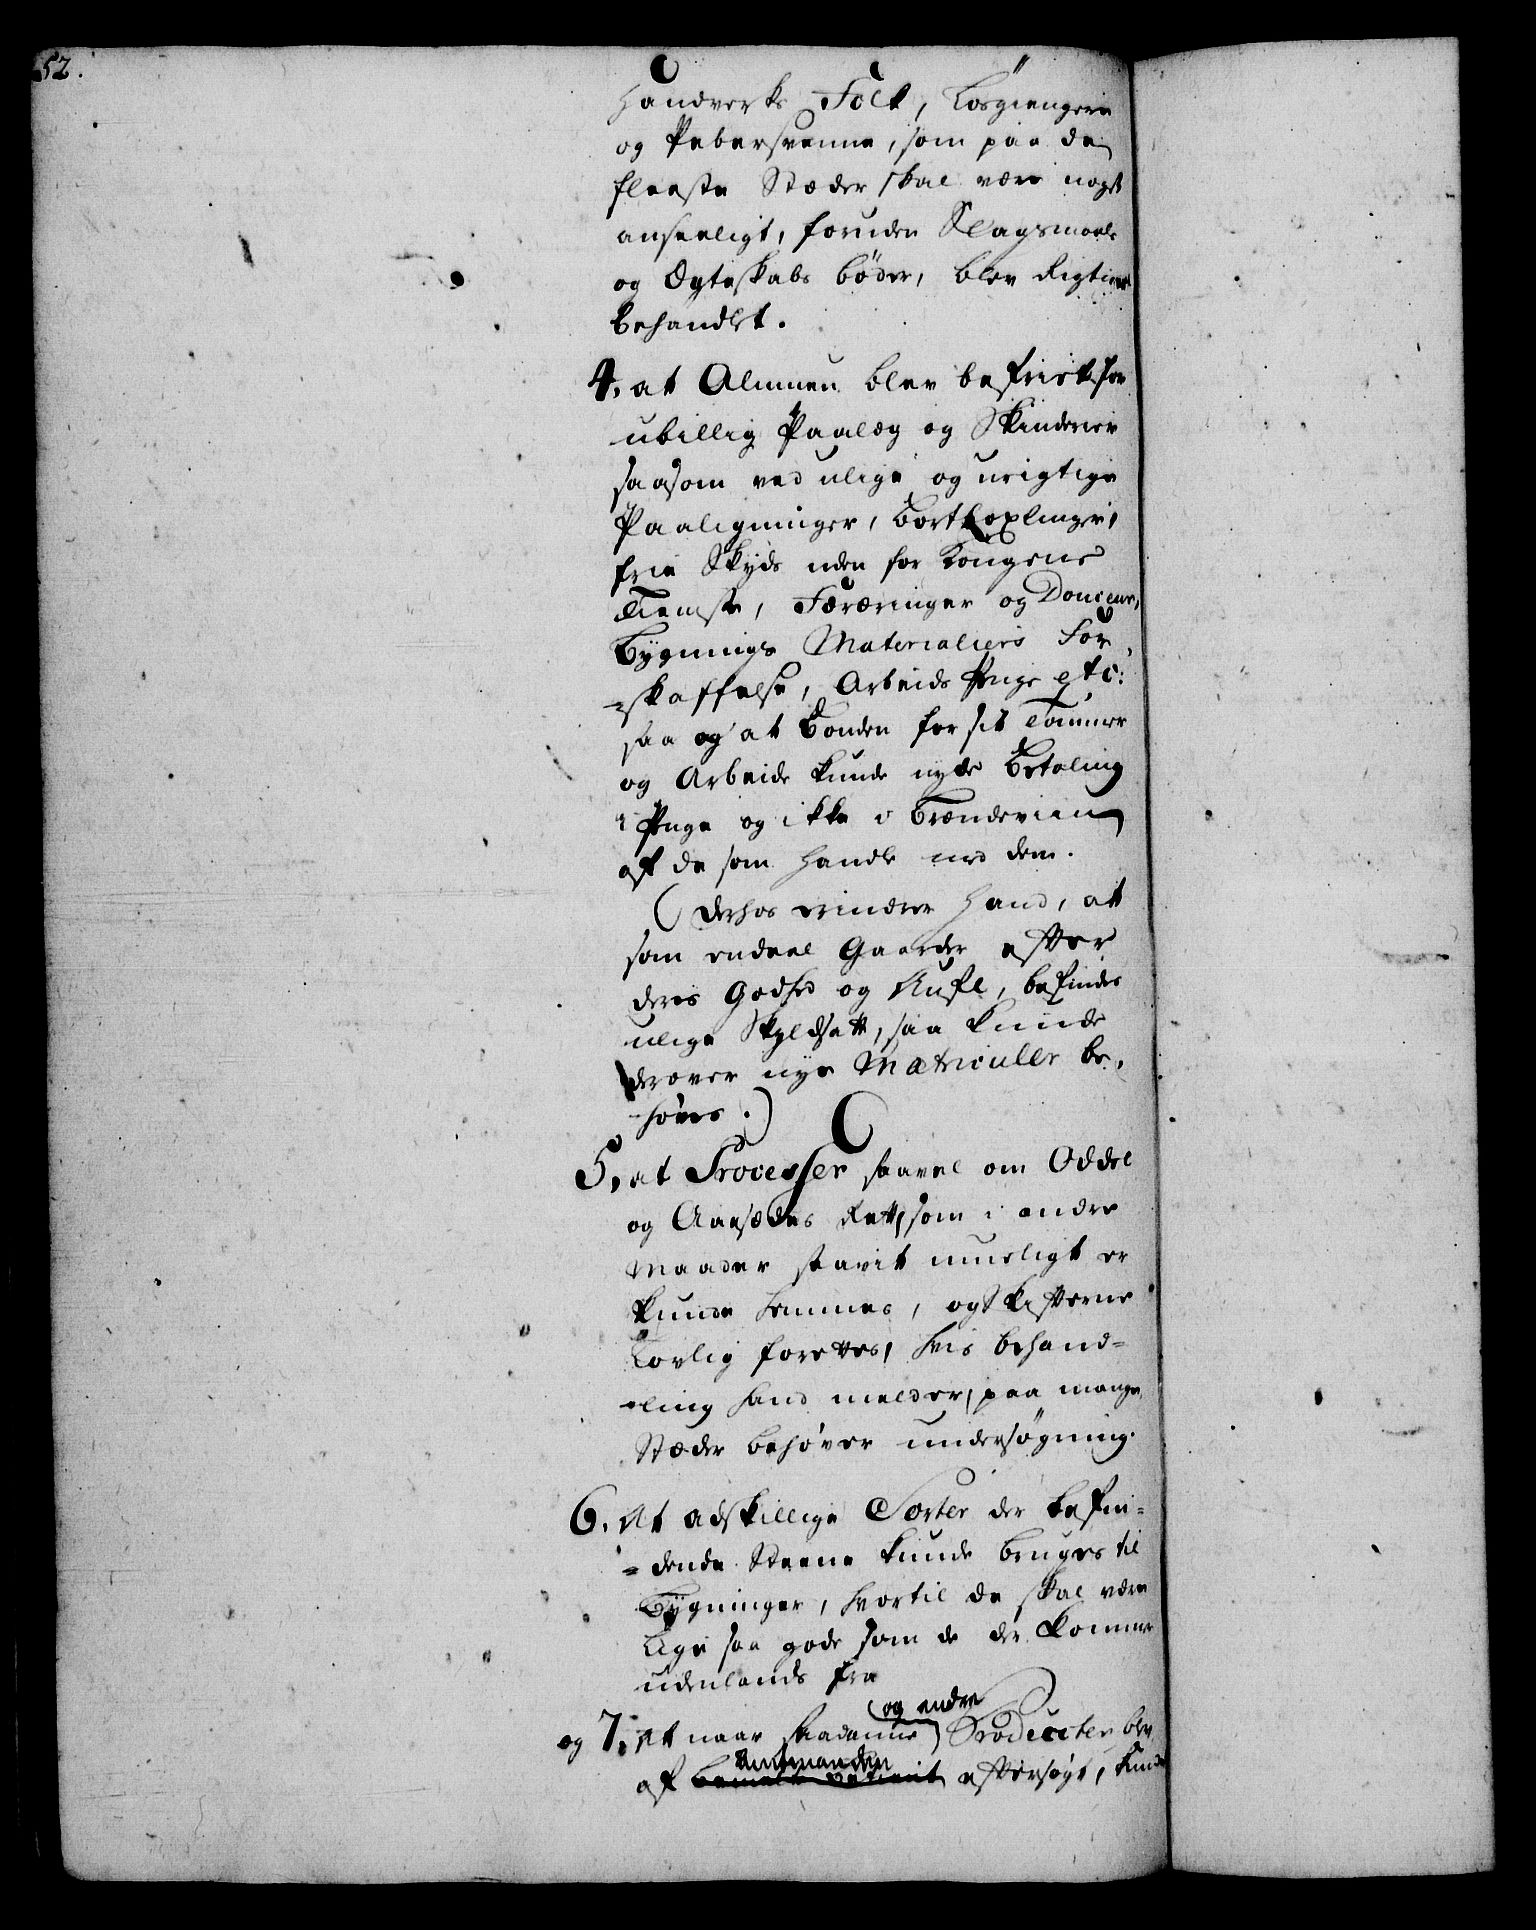 52.
Handverks Folk, Løsgiengere
og Pebersvenne, som paa de
fleeste Stæder skal være noget
anseeligt, foruden Slagsmaals
og Ægteskabs bøder, blev Rigtig
behandlet.
4, at Almuen blev befriet for
ubillig Paalæg og Skinderier
saasom ved ulige og urigtige
Paaligninger, bortboxlinger,
frie Skyds uden for Kongens
Tieneste, Foræringer og Douceur,
Bygnings Materialiers For-
-skaffelse, Arbeids Penge etc:
saa og at Bonden for sit Tømmer
og Arbeide kunde nyde Betaling
i Penge og ikke i Brændeviin
af de som handle med dem.
(Derhos erindrer Hand, at
som endeel Gaarder efter
deres Godhed og Aufl, befindes
ulige Skyldsatt, saa kunde
derover nye Matriculler be-
-høves.)
5, at Processer saavel om Oddel
og Aasædes Rett, som i andre
Maader saavit mueligt er
kunde hemmes, og Skifterne
Lovlig forettes, hvis behand-
-ling hand melder, paa mange
Stæder behøver undersøgning.
6. At adskillige Sorter der befin-
-dende Steene kunde bruges til
Bygninger, hvortil de skal være
lige saa gode som de der kommer
udenlands fra
og andre
og 7, At naar saadanne Producter blev
Amtmanden
af eftersøgt, kunde